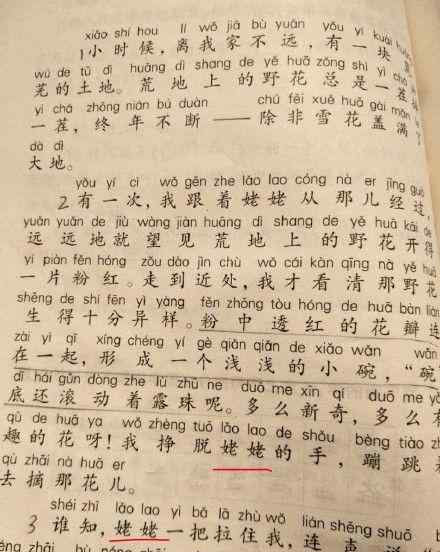 xiǎo shí hou lí wǒ jiā bù yuǎn yǒu yí kuài
1小时候，离我家不远，有一块
wú de tǔ dì huāng dì shang de yě huā zǒng shì yì chá
芜的土地。荒地上的野花总是一茬
yì chá zhōng nián bú duàn chú fēi xuě huā gài mǎn
一茬，终年不断——除非雪花盖满
dà dì
大地。
yǒu yí cì wǒ gēn zhe lǎo lao cóng nà er jīng guò
2有一次，我跟着姥姥从那儿经过，
yuǎn yuǎn de jiù wàng jiàn huāng dì shang de yě huā kāi de
远远地就望见荒地上的野花开得
yí piàn fěn hóng zǒu dào jìn chù wǒ cái kàn qīng nà yě huā
一片粉红。走到近处，我才看清那野花
shēng de shí fēn yì yàng fěn zhōng tòu hóng de huā bàn lián
生得十分异样。粉中透红的花瓣连
zài yì qǐ xíng chéng yí gè qiǎn qiǎn de xiǎo wǎn wǎn
在一起，形成一个浅浅的小碗，“碗”
dǐ hái gǔn dòng zhe lù zhū ne duō me xīn qí duō me yǒu
底还滚动着露珠呢。多么新奇，多么有
qù de huā ya wǒ zhèng tuō lǎo lao de shǒu bèng tiào zhe
趣的花呀！我挣脱姥姥的手，蹦跳着
qù zhāi nà huā er
去摘那花儿。
shéi zhī lǎo lao yì bǎ lā zhù wǒ lián shēng shuō
3谁知，姥姥一把拉住我，连声说